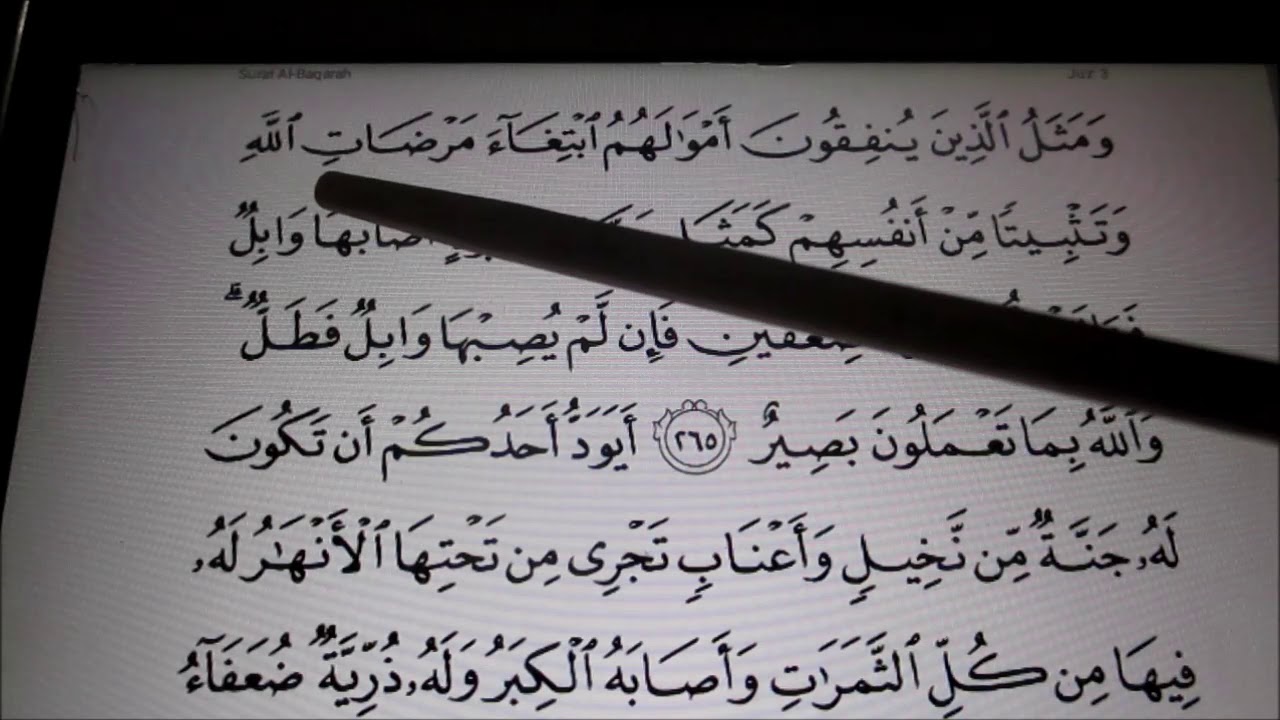 Surat Al-Baqarah
Juz 3
وَمَثَلُ ٱلَّذِينَ يُنفِقُونَ أَمْوَٰلَهُمُ ٱبْتِغَآءَ مَرْضَاتِ ٱللَّهِ
وَتَثْبِيتًا مِّنْ أَنفُسِهِمْ أَصَابَهَا وَابِلٌ
فَإِن لَّمْ يُصِبْهَا وَابِلٌ فَطَلٌّ ۗ
وَٱللَّهُ بِمَا تَعْمَلُونَ بَصِيرٌ ٢٦٥ أَيَوَدُّ أَحَدُكُمْ أَن تَكُونَ
لَهُۥ جَنَّةٌ مِّن نَّخِيلٍ وَأَعْنَابٍ تَجْرِى مِن تَحْتِهَا ٱلْأَنْهَٰرُ لَهُۥ
فِيهَا مِن كُلِّ ٱلثَّمَرَٰتِ وَأَصَابَهُ ٱلْكِبَرُ وَلَهُۥ ذُرِّيَّةٌ ضُعَفَآءُ